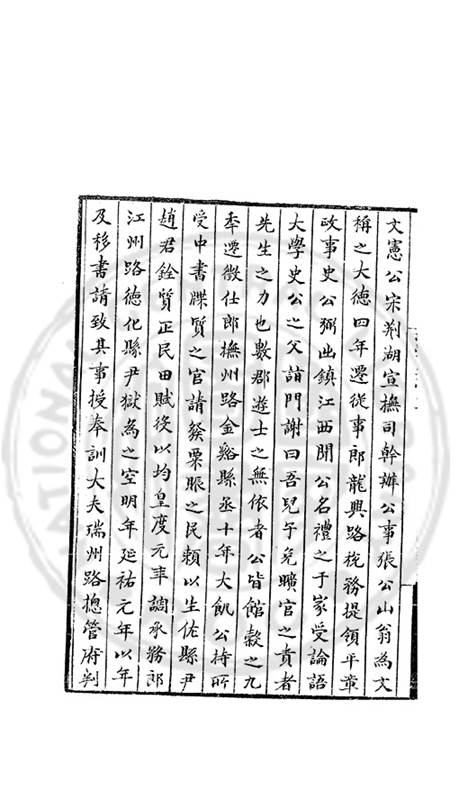 文憲公宋荆湖宣撫司幹辦公事張公山翁為文
稱之大德四年遷從事郎龍興路税務提領平章
政事史公弼出鎮江西聞公名禮之于家受論語
大學史公之父詣門謝曰吾兒乎免曠官之責者
先生之力也數郡遊士之無依者公皆館穀之九
年遷徵仕郎撫州路金谿縣丞十年大飢公持所
受中書牒質之官請發粟賑之民賴以生佐縣尹
趙君銓質正民田賦役以均皇度元年調承務郎
江州路德化縣尹獄為之空明年延祐元年以年
及移書請致其事授奉訓大夫瑞州路摠管府判
NATIONAL